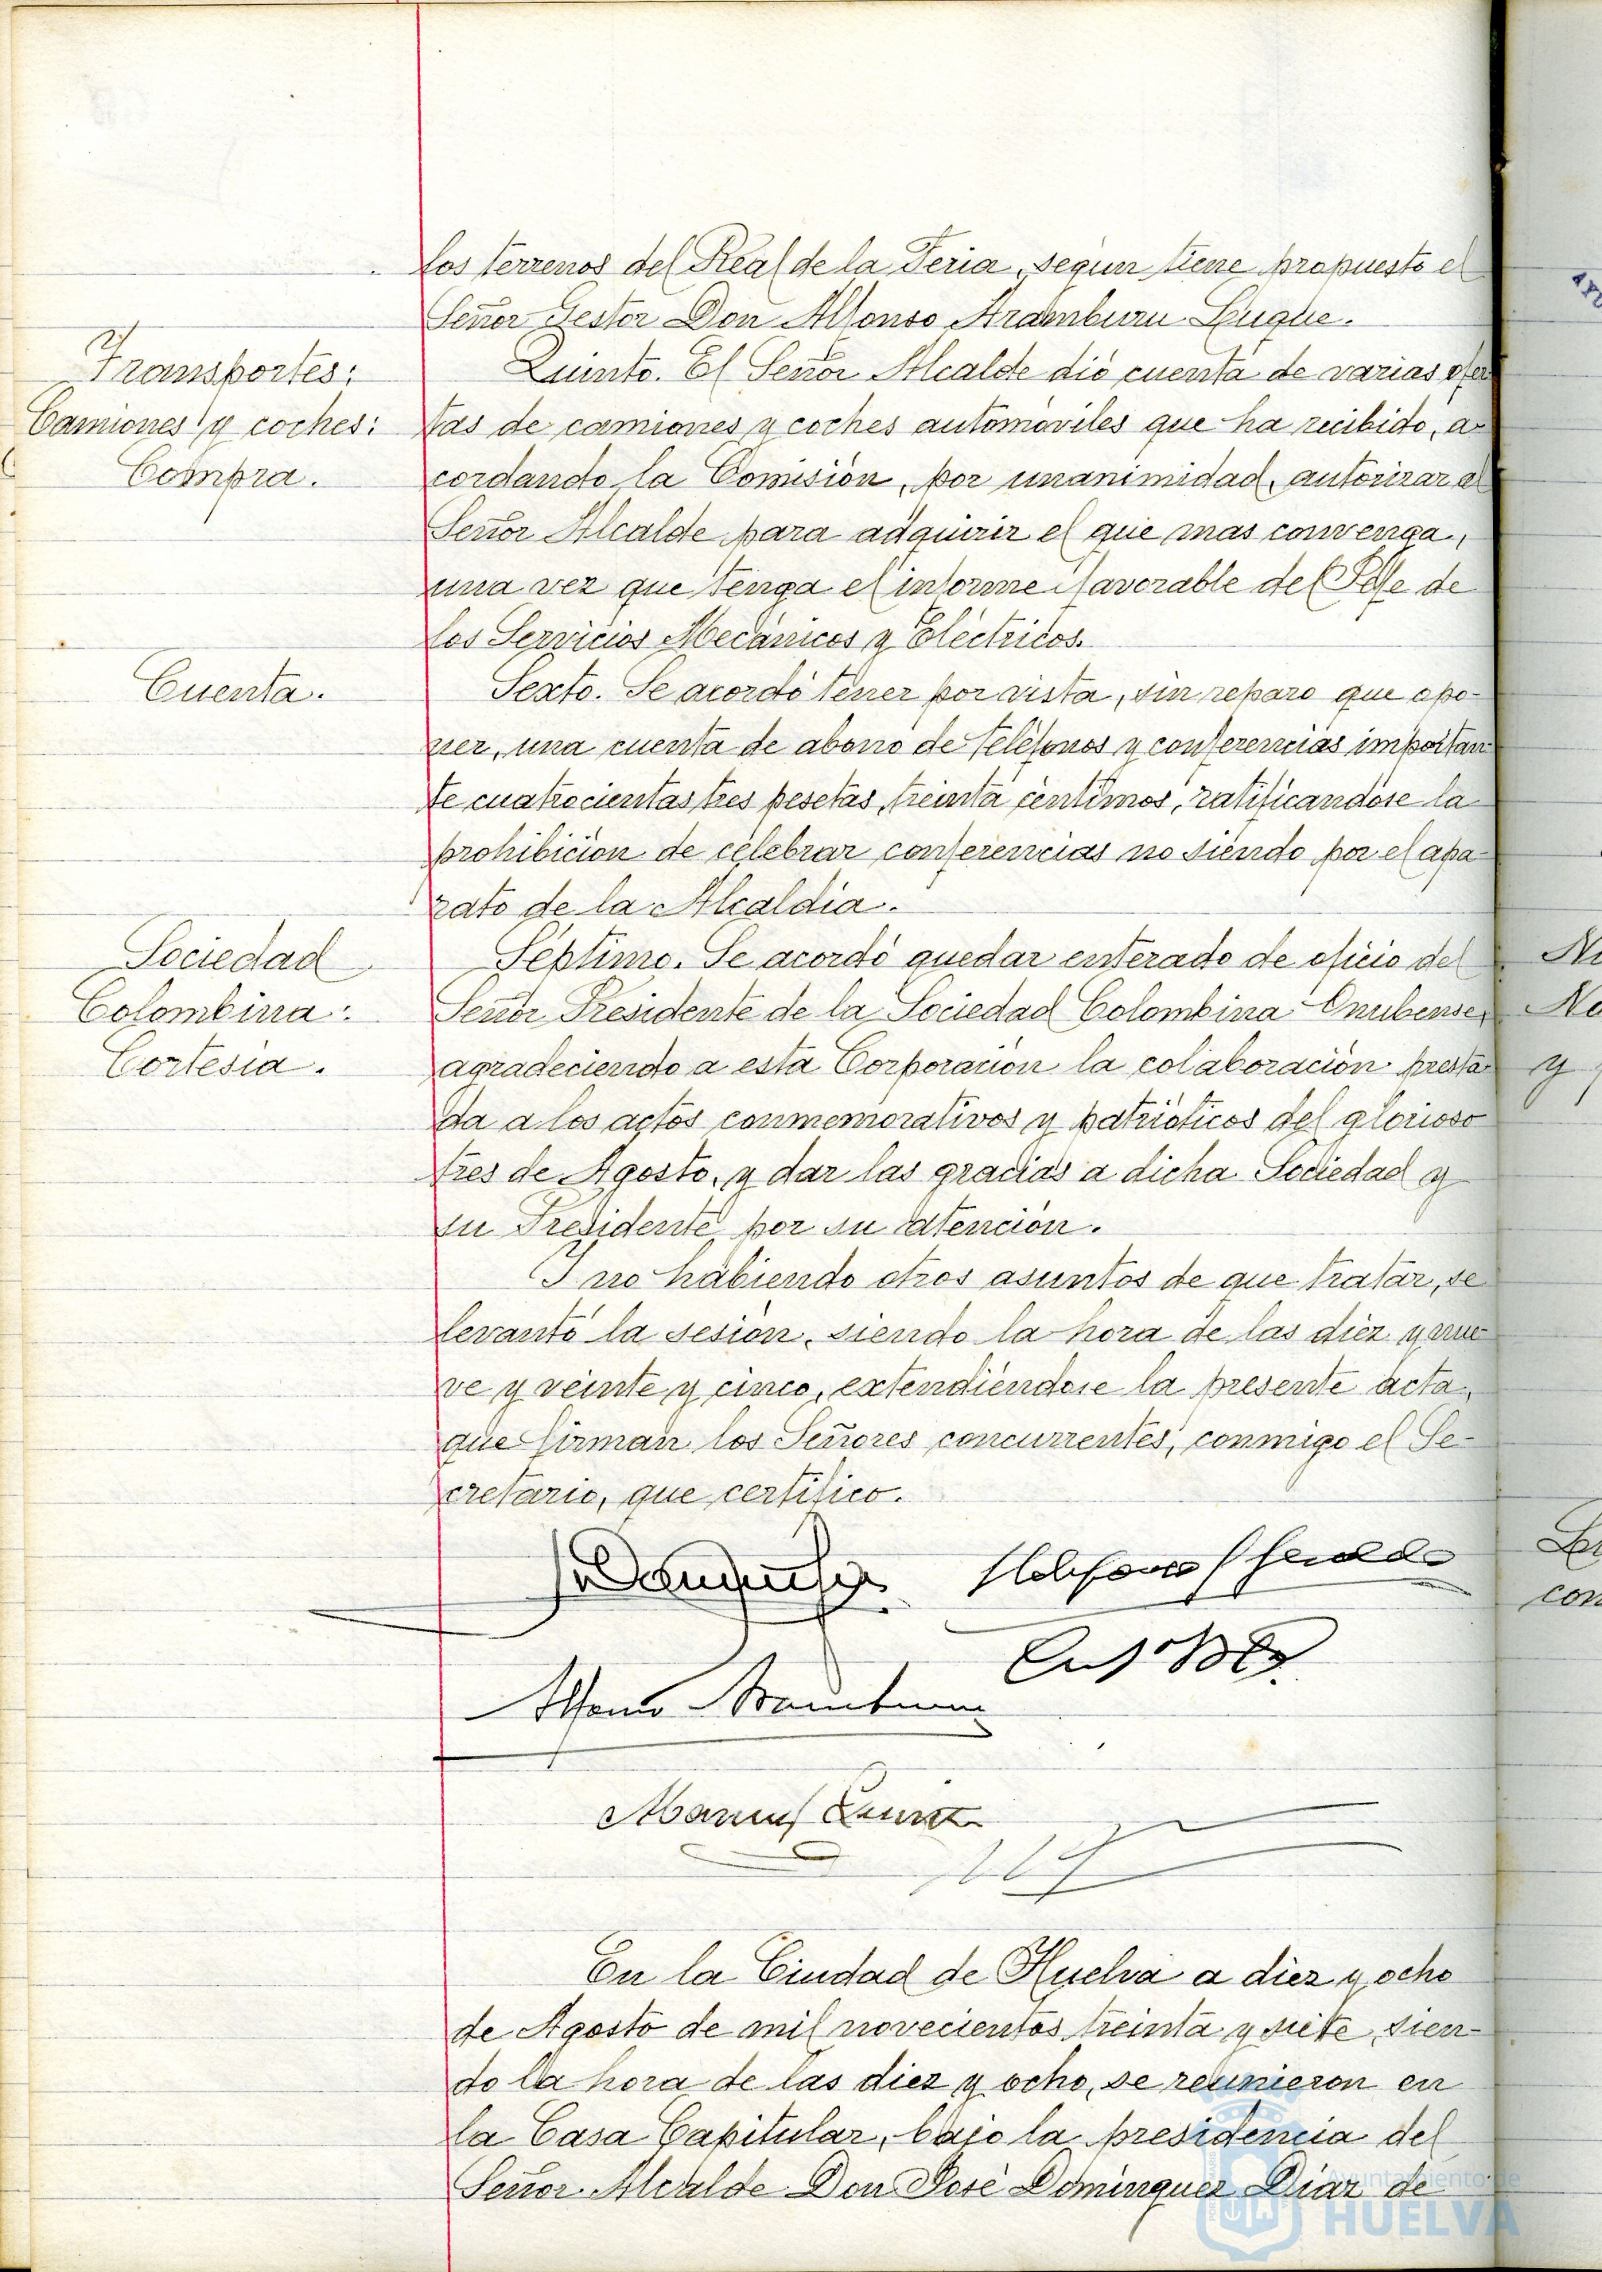 los terrenos del Real de la Feria, según tiene propuesto el
Señor Gestor Don Alfonso Aramburu Luque.
Transportes:
Camiones y coches:
Compra.
Quinto. El Señor Alcalde dió cuenta de varias ofer
tas de camiones y coches automóviles que ha recibido, a-
cordando la Comisión, por unanimidad, autorizar al
Señor Alcalde para adquirir el que mas convenga,
una vez que tenga el informe favorable del Jefe de
los Servicios Mecánicos y Eléctricos.
Cuenta.
Sexto. Se acordó tener por vista, sin reparo que opo-
ner, una cuenta de abono de teléfonos y conferencias importan
te cuatrocientas tres pesetas, treinta céntimos, ratificandose la
prohibición de celebrar conferencias no siendo por el apa-
rato de la Alcaldia.
Sociedad
Colombina:
Cortesia.
Séptimo. Se acordó quedar enterado de oficio del
Señor Presidente de la Sociedad Colombina Onubense,
agradeciendo a esta Corporación la colaboración presta-
da a los actos conmemorativos y patrióticos del glorioso
tres de Agosto, y dar las gracias a dicha Sociedad y
su Presidente por su atención.
Y no habiendo otros asuntos de que tratar, se
levantó la sesión, siendo la hora de las diez y nue
ve y veinte y cinco, extendiéndose la presente acta,
que firman los Señores concurrentes, conmigo el Se-
cretario, que certifico.
Alfonso Aramburu
Manuel
En la Ciudad de Huelva a diez y ocho
de Agosto de mil novecientos treinta y siete, sien-
do la hora de las diez y ocho, se reunieron en
la Casa Capitular, bajo la presidencia del
Señor Alcalde Don José Domínguez Díaz de
Ayuntamiento de
HUELVA